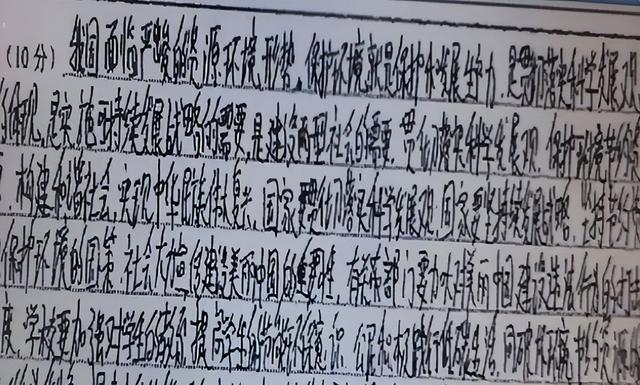 (10分) 我国面临严峻的资源环境形势,保护环境就是保护和发展生产力,是贯彻落实科学发展观
体现,是实施可持续发展战略的需要,是建设两型社会的需要,贯彻落实科学发展观,保护环境节约
,构建和谐社会,实现中华民族伟大复兴,国家要贯彻落实科学发展观,国家要坚持可持续发展战略,坚持节约
保护环境的国策,社会大力宣传建设美丽中国的重要性,有关部门要加大对美丽中国建设违法行为的打击
度,学校要加强对学生的教育,提高学生的节能环保意识,公民积极践行低碳生活,同破坏环境节约资源